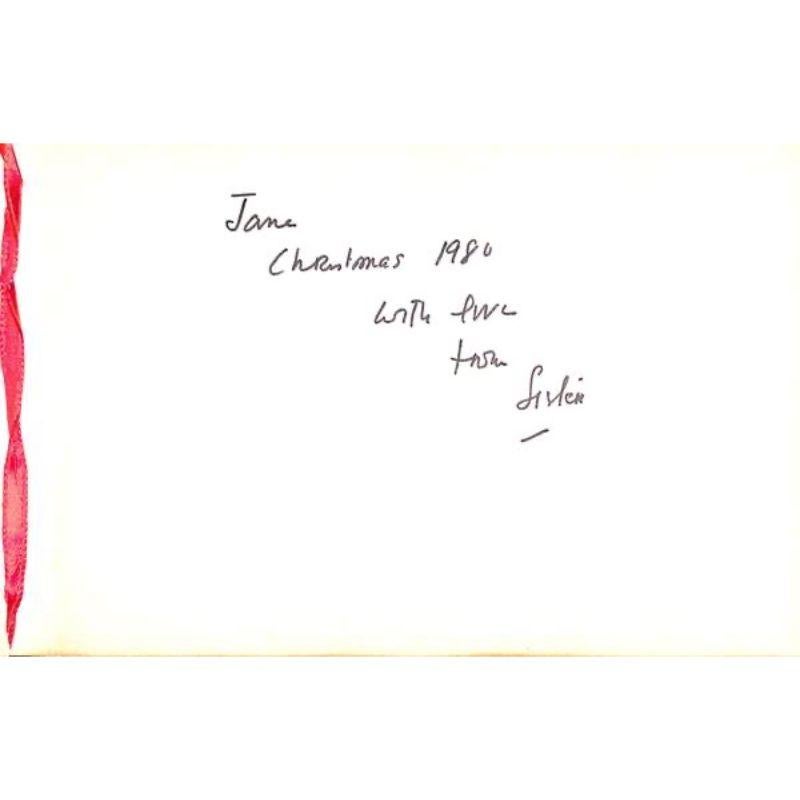 Jane
Christmas 1980
with love
from
Sister